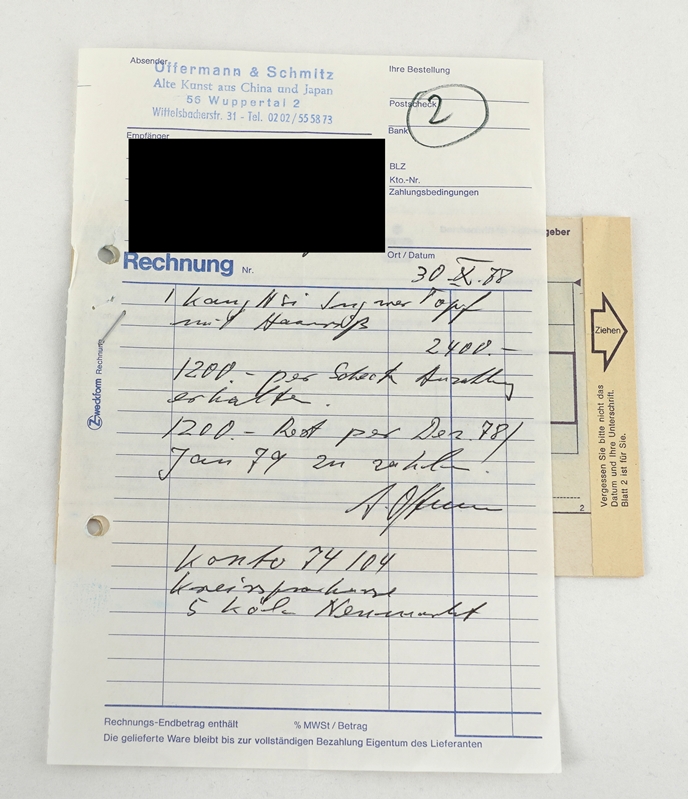 Absender
Offermann & Schmitz
Alte Kunst aus China und Japan
56 Wuppertal 2
Wittelsbacherstr. 31 - Tel. 0202/555873
Ihre Bestellung
Postscheck
2
Bank
BLZ
Kto.-Nr.
Zahlungsbedingungen
Empfänger
Ort / Datum
Rechnung Nr.
30 IX. 78
1 Kang Hsi Ingwer Topf
mit Haarriß
2400.-
1200.- per Scheck Anzahlung
erhalten.
1200.- Rest per Dez. 78/
Jan 79 zu zahlen.
Konto 74104
Kreissparkasse
5 Köln Neumarkt
Zweckform Rechnung
Rechnungs-Endbetrag enthält % MWSt / Betrag
Die gelieferte Ware bleibt bis zur vollständigen Bezahlung Eigentum des Lieferanten
geber
Ziehen
Vergessen Sie bitte nicht das
Datum und Ihre Unterschrift.
Blatt 2 ist für Sie.
2